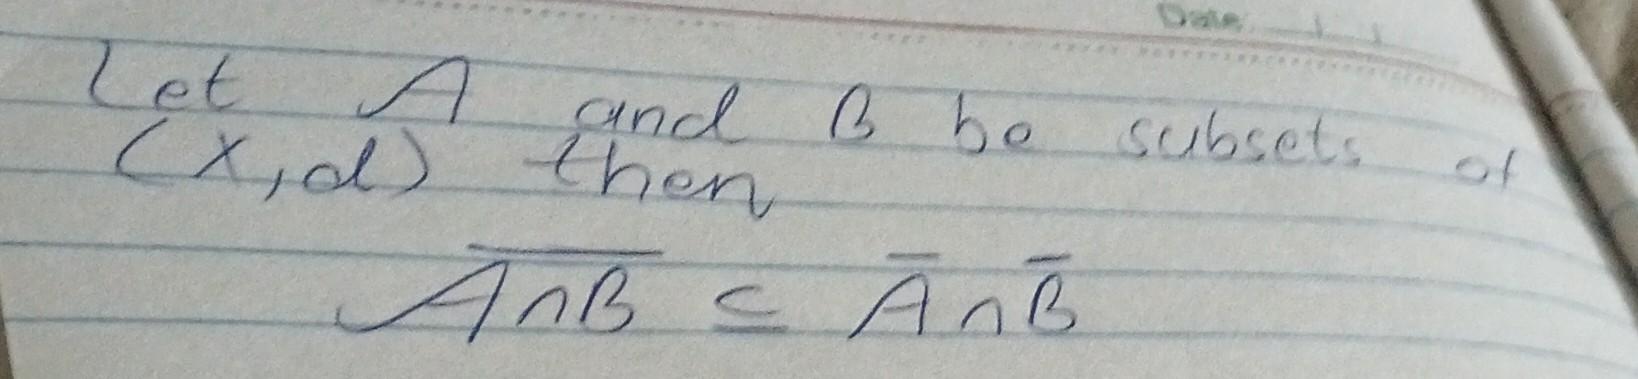 Date
Let A and B be subsets of
(X,d) then
$\overline{A \cap B} \subseteq \overline{A} \cap \overline{B}$